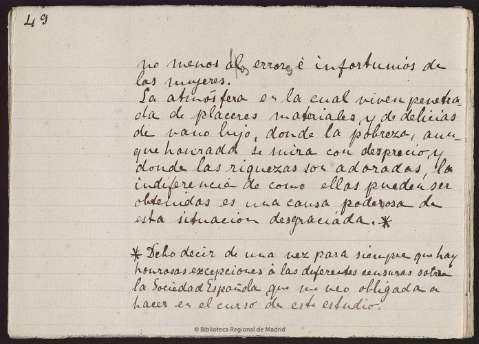 49
no menos á los errores é infortunios de
las mujeres.
La atmósfera en la cual viven penetra
da de placeres materiales, y de delicias
de vano lujo, donde la pobreza, aun-
que honrada se mira con desprecio, y
donde las riquezas son adoradas, la
indiferencia de como ellas pueden ser
obtenidas es una causa poderosa de
esta situación desgraciada.*
* Debo decir de una vez para siempre que hay
honrosas excepciones á las diferentes censuras sobre
la Sociedad Española que me veo obligada a
hacer en el curso de este estudio.
© Biblioteca Regional de Madrid